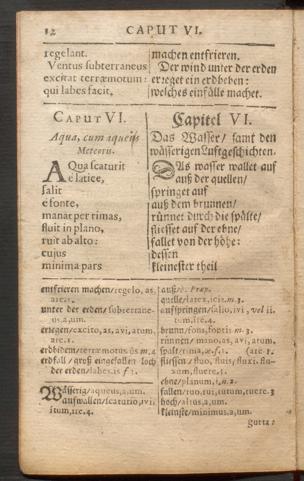 12 CAPUT VI.
regelant.
Ventus subterraneus
excitat terræmotum:
qui labes facit.
machen entfrieren.
Der wind unter der erden
erreget ein erdbeben:
welches einfälle machet.
CAPUT VI.
Aqua, cum aqueis
Meteoris.
AQua scaturit
e latice,
salit
e fonte,
manat per rimas,
fluit in plano,
ruit ab alto:
cujus
minima pars
Capitel VI.
Das Wasser/ samt den
wässerigen Luftgeschichten.
DAs wasser wallet auf
auß der quellen/
springet auf
auß dem brunnen/
rünnet durch die spälte/
fliesset auf der ebne/
fallet von der höhe:
dessen
kleinester theil
entfrieren machen/regelo, as,
are. 1.
unter der erden/subterrane-
us, a, um.
erregen/excito, as, avi, atum,
are. 1.
erdbiden/terræ motus ûs m. 4
erdfall/ groß eingefallen loch
der erden/labes is f. 3.
Wässerig/aqueus, a, um.
aufwallen/scaturio, ivi
itum, ire. 4.
auß/è. Præp.
quelle/latex, icis. m. 3.
aufspringen/salio, ivi, vel ii
tum, ire. 4.
brunn/fons, fontis m. 3.
rinnen/mano, as, avi, atum,
spalt/rima, æ. f. 1. (are. 1.
fliessen/fluo, fluis, fluxi, flu-
xum, fluere. 3.
ebne/planum, i, n. 2.
fallen/ruo, rui, rutum, ruere. 3
hoch/altus, a, um.
kleinste/minimus, a, um.
gutta: